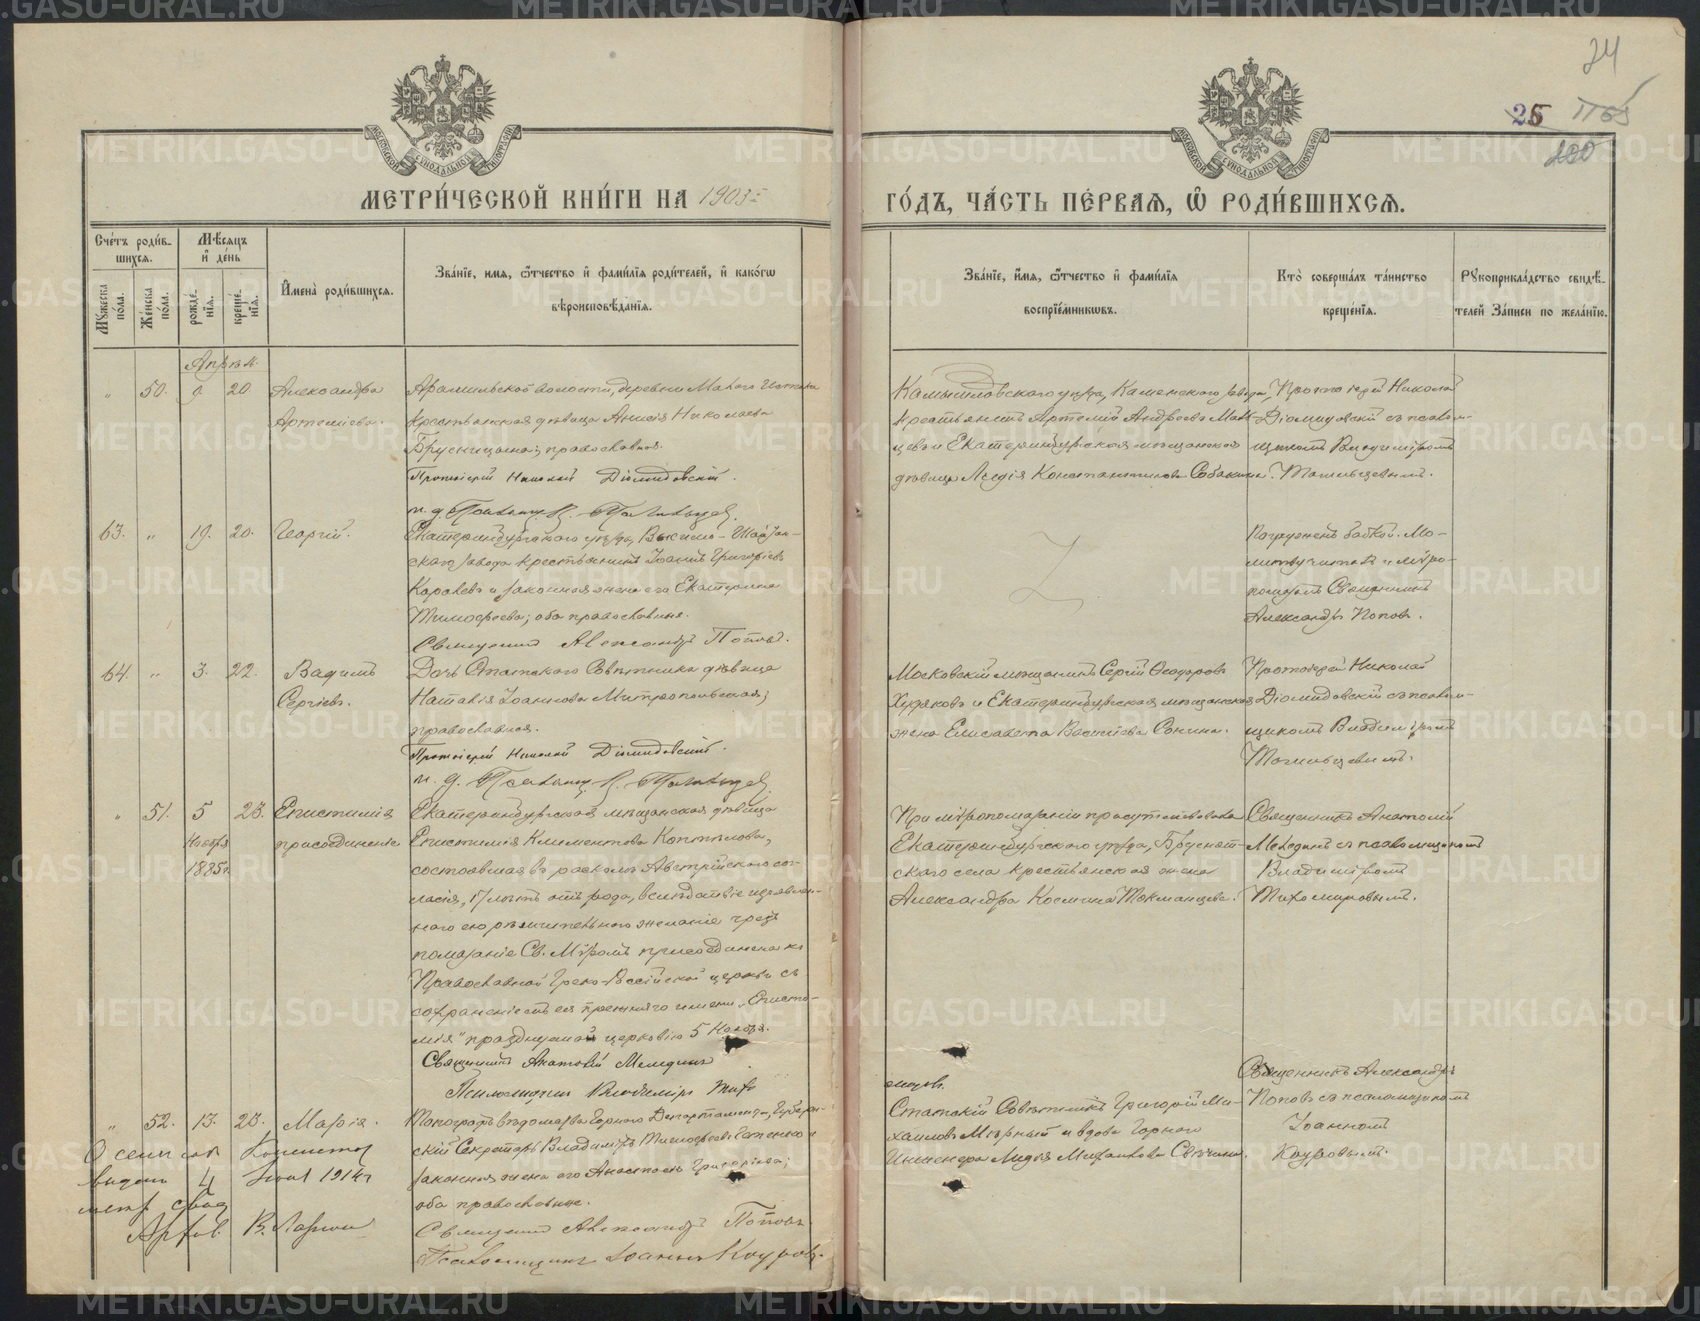 24
25
200
МЕТРИ́ЧЕСКОЙ КНИ́ГИ НА 1903 ГО́ДЪ, ЧА́СТЬ ПЕ́РВАЯ, Ѡ҆ РОДИ́ВШИХСЯ.
Сче́тъ роди́вшихся.
Мꙋ́жеска по́ла.
Же́нска по́ла.
Мѣ́сяцъ и҆ де́нь
рожде́нїя.
креще́нїя.
И҆мена̀ роди́вшихся.
Зва́нїе, и҆мя, ѻ҆́тчество и҆ фами́лїя роди́телей, и҆ како́гѡ
вѣроисповѣ́данїя.
Зва́нїе, и҆́мя, ѻ҆́тчество и҆ фами́лїя
воспрїе́мникѡвъ.
Кто̀ соверша́лъ та́инство
креще́нїя.
Рꙋкоприкла́дство свидѣ́-
телей за́писи по жела́нїю.
Апрѣль
„ 50. 9. 20 Александра
Артемиева.
Арамильской волости, деревни Малаго Истока
крестьянская дѣвица Анисія Николаева
Брусницына; православная.
Протоіерей Николай Діомидовскій.
Камышловскаго уѣзда, Каменскаго завода,
крестьянинъ Артемій Андреевъ
и Екатеринбургская мѣщанская
дѣвица Лидія Константинова Собакина.
Протоіерей Николай
Діомидовскій съ псаломщикомъ Владиміромъ
63. „ 19. 20. Георгій.
Екатеринбургскаго уѣзда, Висимо-Шайтан-
скаго завода крестьянинъ Іоаннъ Григоріевъ
Королевъ и законная жена его Екатерина
Тимофеева; оба православные.
Священникъ Александръ Поповъ.
Погруженъ бабкой. Мо-
литву читалъ и мѵро-
помазалъ Священникъ
Александръ Поповъ.
64. „ 3. 22. Вадимъ
Сергіевъ.
Дочь Статскаго Совѣтника дѣвица
Наталія Іоаннова Митропольская;
православная.
Протоіерей Николай Діомидовскій.
Московскій мѣщанинъ Сергій Ѳеодоровъ
Худяковъ и Екатеринбургская мѣщанская
жена Елисавета Васильева Сонина.
Протоіерей Николай
Діомидовскій съ псалом-
щикомъ Владиміромъ
„ 51. 5 23. Епистимія
Ноября присоединена
1885г.
Екатеринбургская мѣщанская дѣвица
Епистимія Климентова Коптѣлова,
состоявшая въ расколѣ Австрійскаго со-
гласія, 17 лѣтъ отъ рода, вслѣдствіе изъявлен-
наго ею рѣшительнаго желанія чрезъ
помазаніе Св. Мѵромъ присоединена къ
Православной Греко-Россійской церкви съ
сохраненіемъ ея прежняго имени „Еписти-
мія" празднуемой церковію 5 Ноября.
Священникъ Анатолій
Псаломщикъ Владиміръ
При мѵропомазаніи присутствовала
Екатеринбургскаго уѣзда, Бруснят-
скаго села крестьянская жена
Александра Космина Токманцева.
Священникъ Анатолій
съ псаломщикомъ
Владиміромъ
Тихомировымъ.
„ 52. 13. 23. Марія.
вѣдомства Горнаго Департамента, Губерн-
скій Секретарь Владиміръ Тимофеевъ
законная жена его Анастасія Григоріева;
оба православные.
Священникъ Александръ Поповъ.
Псаломщикъ Іоаннъ Кауровъ.
Статскій Совѣтникъ Григорій Ми-
хаиловъ Мѣрный и вдова Горнаго
Инженера Лидія Михаилова
Священникъ Александръ
Поповъ съ псаломщикомъ
Іоанномъ
Кауровымъ.
выдано 4 1914г